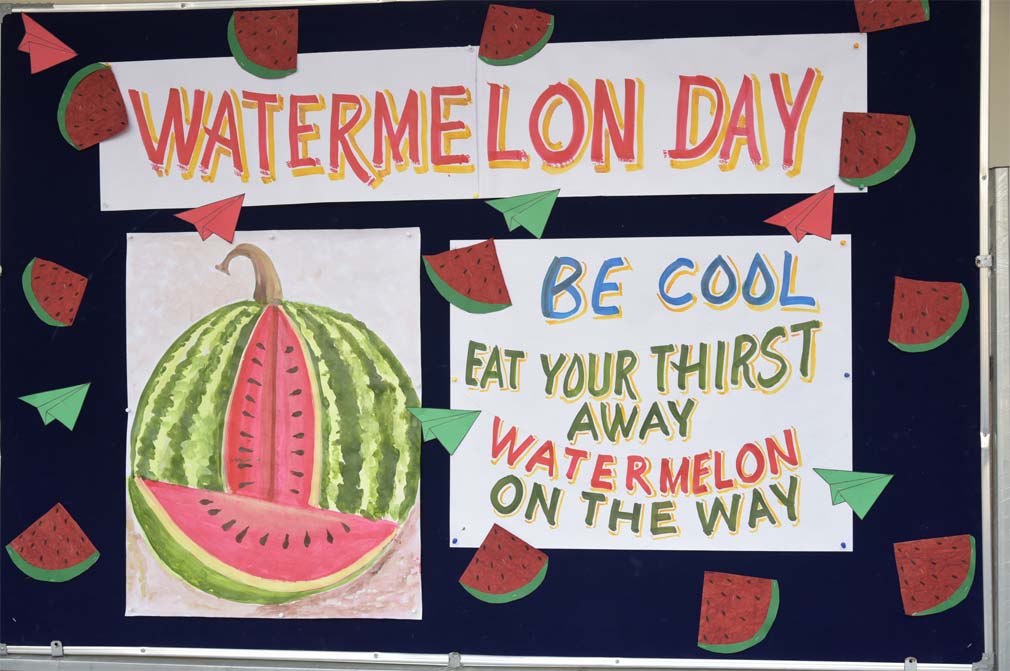 WATERMELON DAY
BE COOL
EAT YOUR THIRST
AWAY
WATERMELON
ON THE WAY